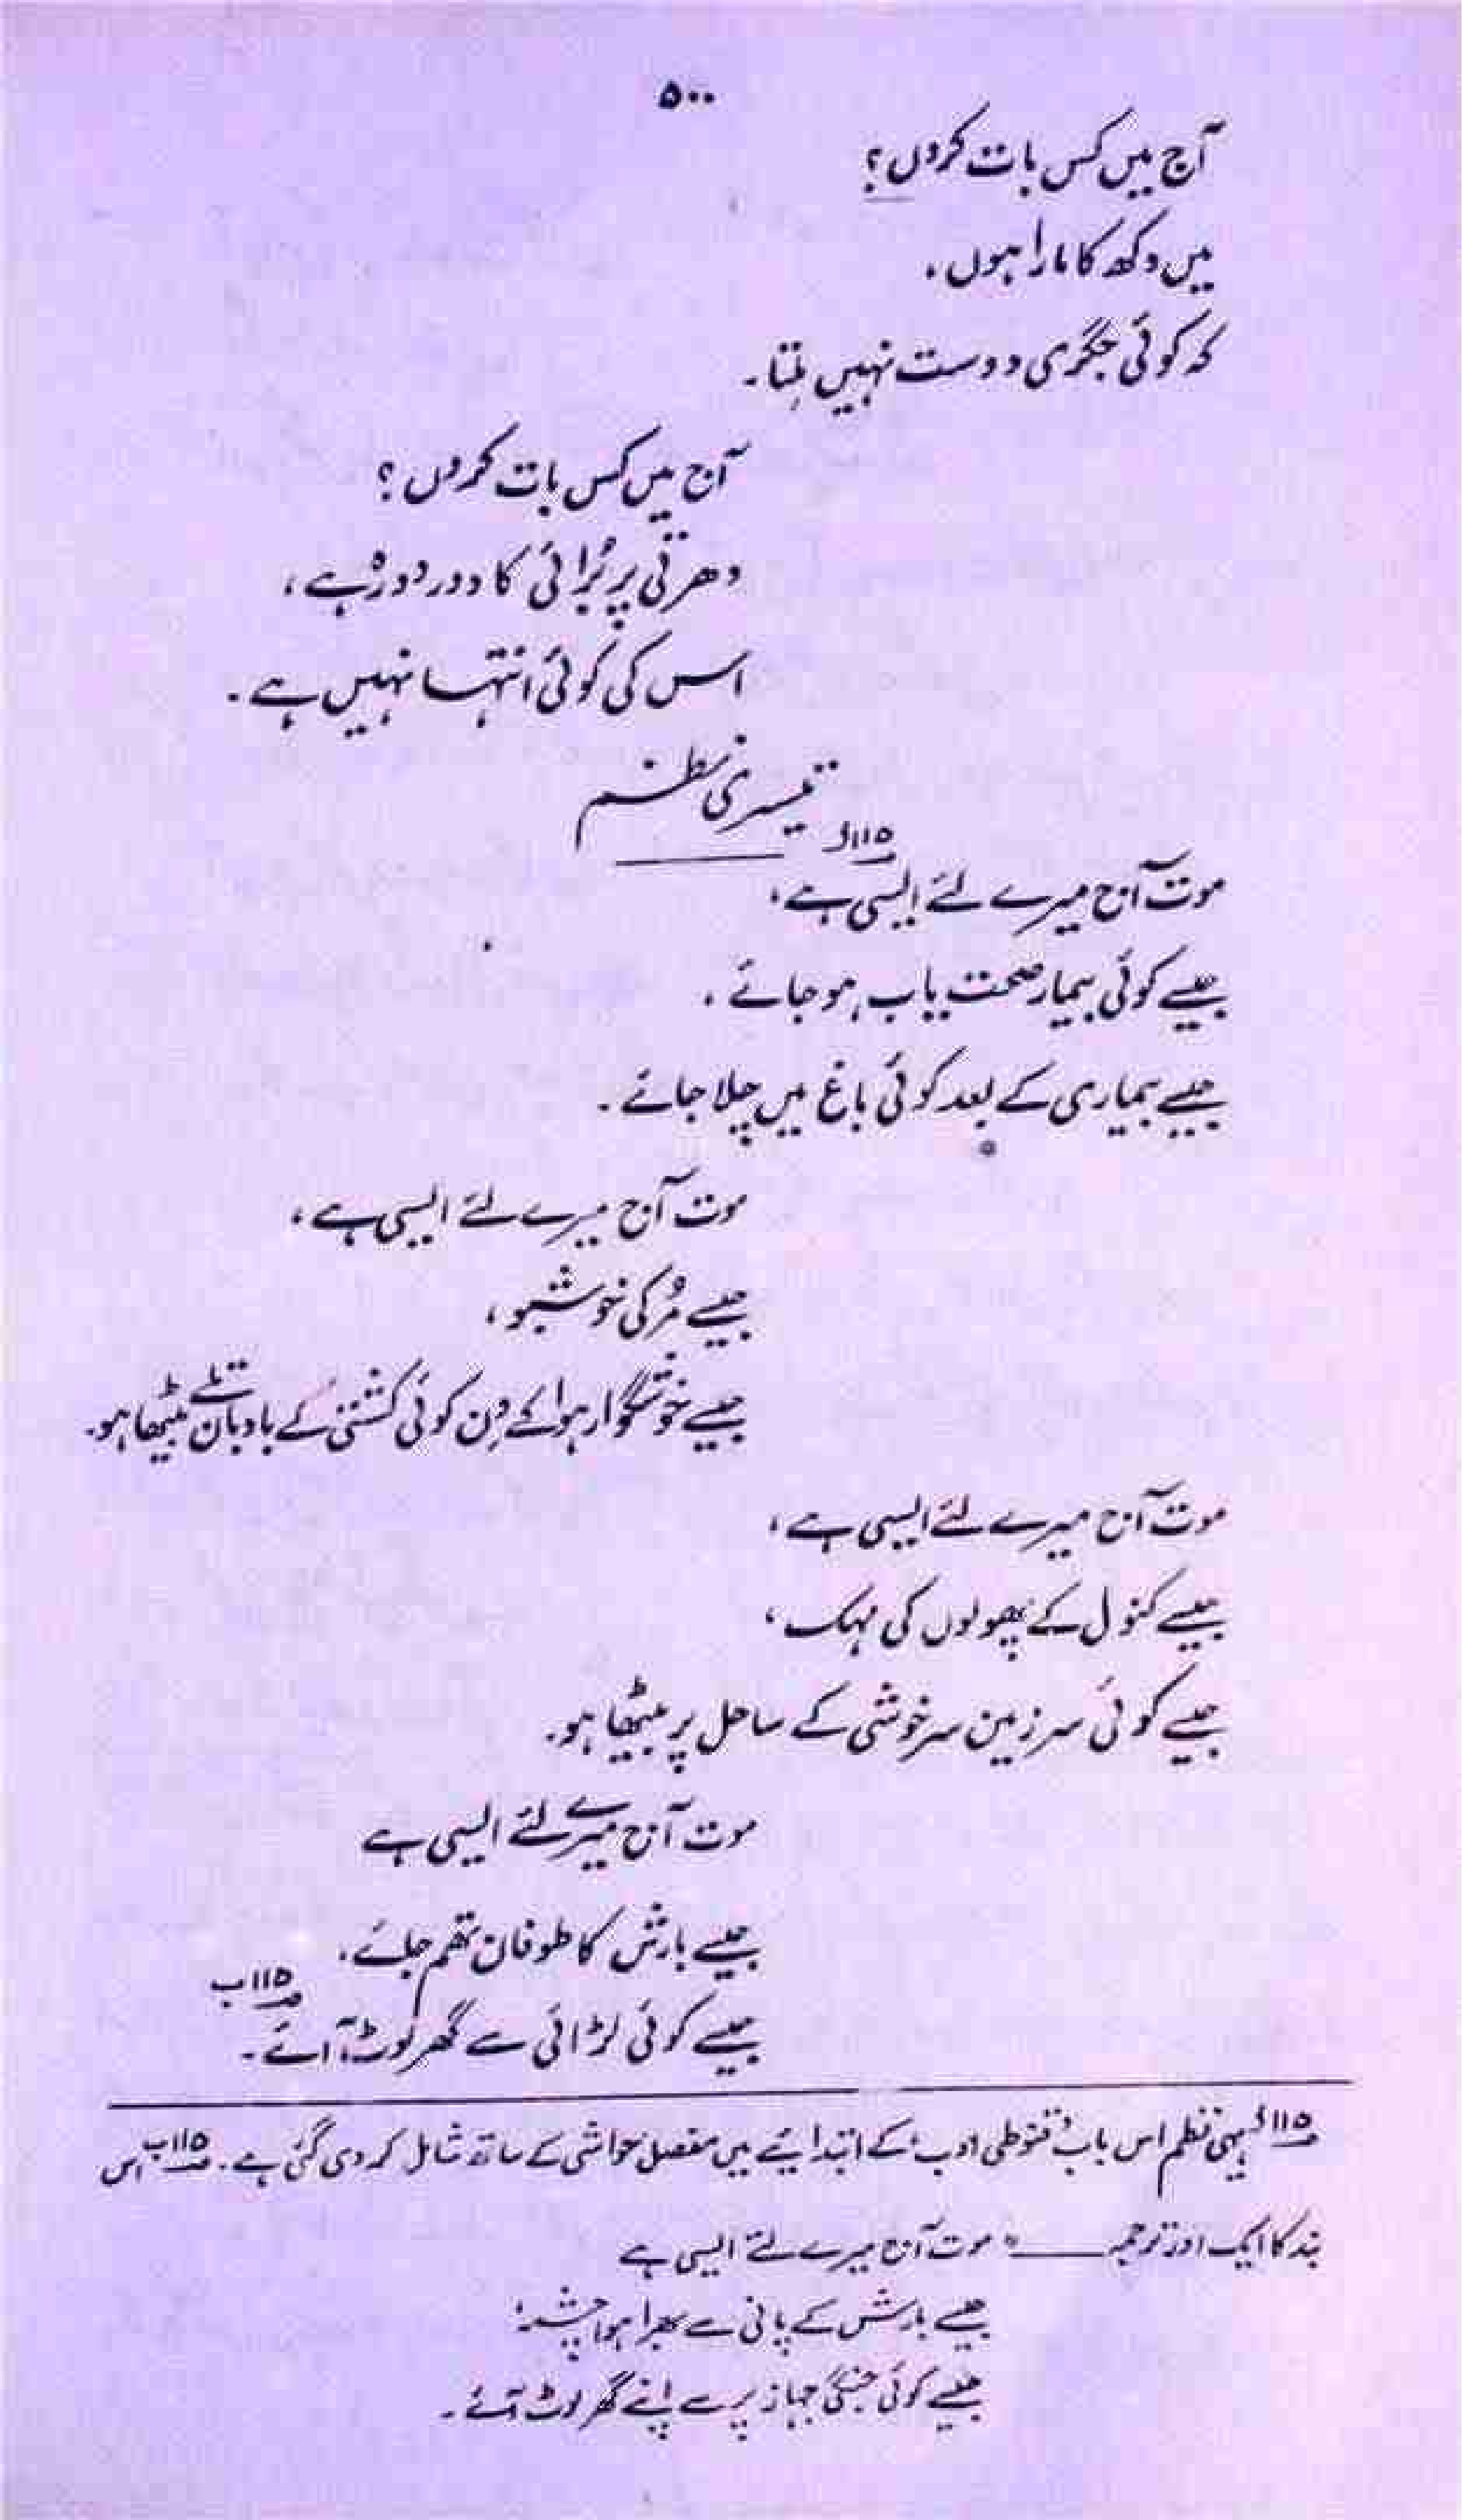 ۵۰۰
آج میں کس بات کروں؟
میں دکھ کا مارا ہوں،
کہ کوئی جگری دوست نہیں مِلتا۔
آج میں کس بات کروں؟
دھرتی پر بُرائی کا دور دورہ ہے،
اس کی کوئی انتہا نہیں ہے۔
تیسری نظم
۱۱۵ا
موت آج میرے لئے ایسی ہے،
جیسے کوئی بیمار صحت یاب ہو جائے،
جیسے بیماری کے بعد کوئی باغ میں چلا جائے۔
موت آج میرے لئے ایسی ہے،
جیسے مُر کی خوشبو،
جیسے خوشگوار ہوا کے دِن کوئی کشتی کے بادبان تلے بیٹھا ہو۔
موت آج میرے لئے ایسی ہے،
جیسے کنول کے پھولوں کی مہک،
جیسے کوئی سرزمین سرخوشی کے ساحل پر بیٹھا ہو۔
موت آج میرے لئے ایسی ہے
جیسے بارش کا طوفان تھم جائے،
جیسے کوئی لڑائی سے گھر لوٹ آئے۔ ۱۱۵ب
۱۱۵ا پہلی نظم اس باب "قنوطی ادب" کے ابتدایئے میں مفصل حواشی کے ساتھ شامل کر دی گئی ہے۔ ۱۱۵ب اس
بند کا ایک اور ترجمہ ــــ "موت آج میرے لئے ایسی ہے
جیسے بارش کے پانی سے بھرا ہوا چشمہ،
جیسے کوئی جنگی جہاز پر سے اپنے گھر لوٹ آئے۔